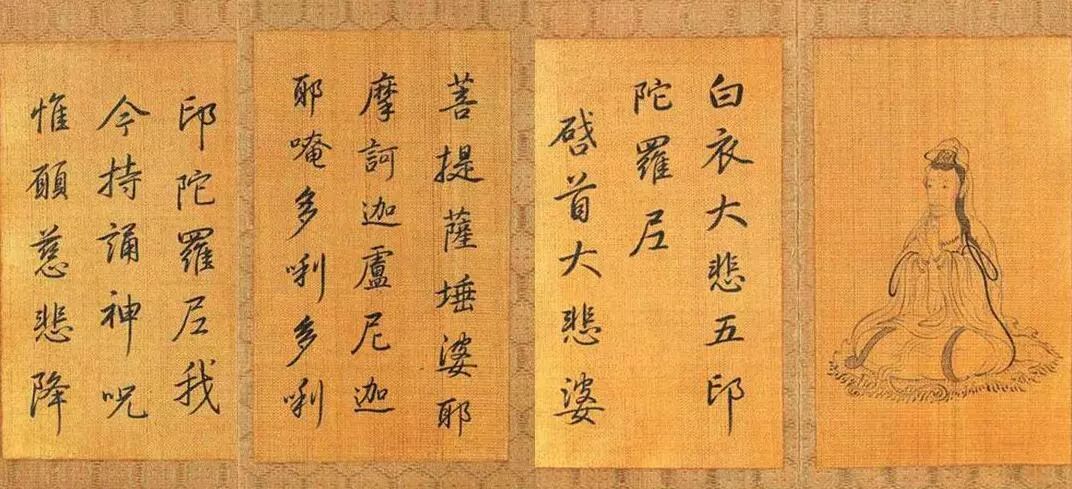 白衣大悲五印
陀羅尼
啓首大悲婆
菩提薩埵婆耶
摩訶迦盧尼迦
耶唵多唎多唎
印陀羅尼我
今持誦神呪
惟願慈悲降